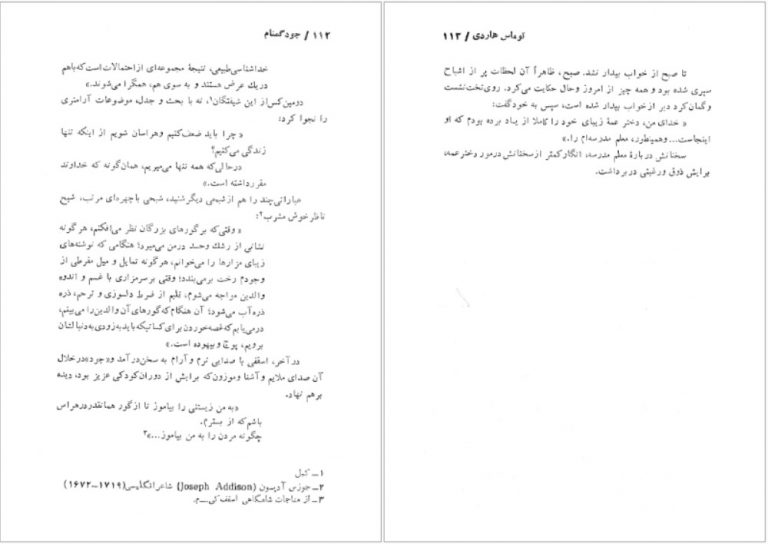 ۱۱۲ / جود گمنام
خداشناسی‌طبیعی، نتیجهٔ مجموعه‌ای از احتمالات است که باهم
در یك عرض هستند و به سوی هم، همگرا می‌شوند.»
دومین کس از این شیفتگان۱، نه با بحث و جدل، موضوعات آرامتری
را نجوا کرد:
« چرا باید ضعف کنیم و هراسان شویم از اینکه تنها
زندگی می‌کنیم؟
در حالی‌که همه تنها می‌میریم، همان‌گونه که خداوند
مقرر داشته است.»
عباراتی چند را هم از شبحی دیگر شنید، شبحی با چهره‌ای مرتب. شبح
ناظر خوش مشرب۲:
« وقتی‌که بر گورهای بزرگان نظر می‌افکنم، هر گونه
نشانی از رشك و حسد در من می‌میرد؛ هنگامی که نوشته‌های
زیبای مزارها را می‌خوانم، هرگونه تمایل و میل مفرطی از
وجودم رخت برمی‌بندد؛ وقتی بر سر مزاری با غم و اندوه
والدین مواجه می‌شوم، قلبم از فرط دلسوزی و ترحم، ذره
ذره آب می‌شود؛ آن هنگام که گورهای آن والدین را می‌بینم،
درمی‌یابم که غصه خوردن برای کسانیکه باید به زودی به دنبالشان
برویم، پوچ و بیهوده است.»
در آخر، اسقفی با صدایی نرم و آرام به سخن درآمد و «جود» در خلال
آن صدای ملایم و آشنا و موزون که برایش از دوران کودکی عزیز بود، دیده
برهم نهاد.
«به من زیستنی را بیاموز تا از گور همانقدر در هراس
باشم که از بسترم.
چگونه مردن را به من بیاموز...»۳
۱ـ کبل
۲ـ جوزس آدیسون (Joseph Addison) شاعر انگلیسی (۱۷۱۹ـ۱۶۷۲)
۳ـ از مناجات شامگاهی اسقف کن ـ م.
توماس هاردی / ۱۱۳
تا صبح از خواب بیدار نشد. صبح، ظاهراً آن لحظات پر از اشباح
سپری شده بود و همه چیز از امروز و حال حکایت می‌کرد. روی تخت نشست
و گمان کرد دیر از خواب بیدار شده است، سپس به خود گفت:
« خدای من، دختر عمهٔ زیبای خود را کاملا از یاد برده بودم که او
اینجاست... و همینطور، معلم مدرسه‌ام را.»
سخنانش دربارهٔ معلم مدرسه، انگار کمتر از سخنانش در مورد دختر عمه،
برایش ذوق و رغبتی در بر داشت.